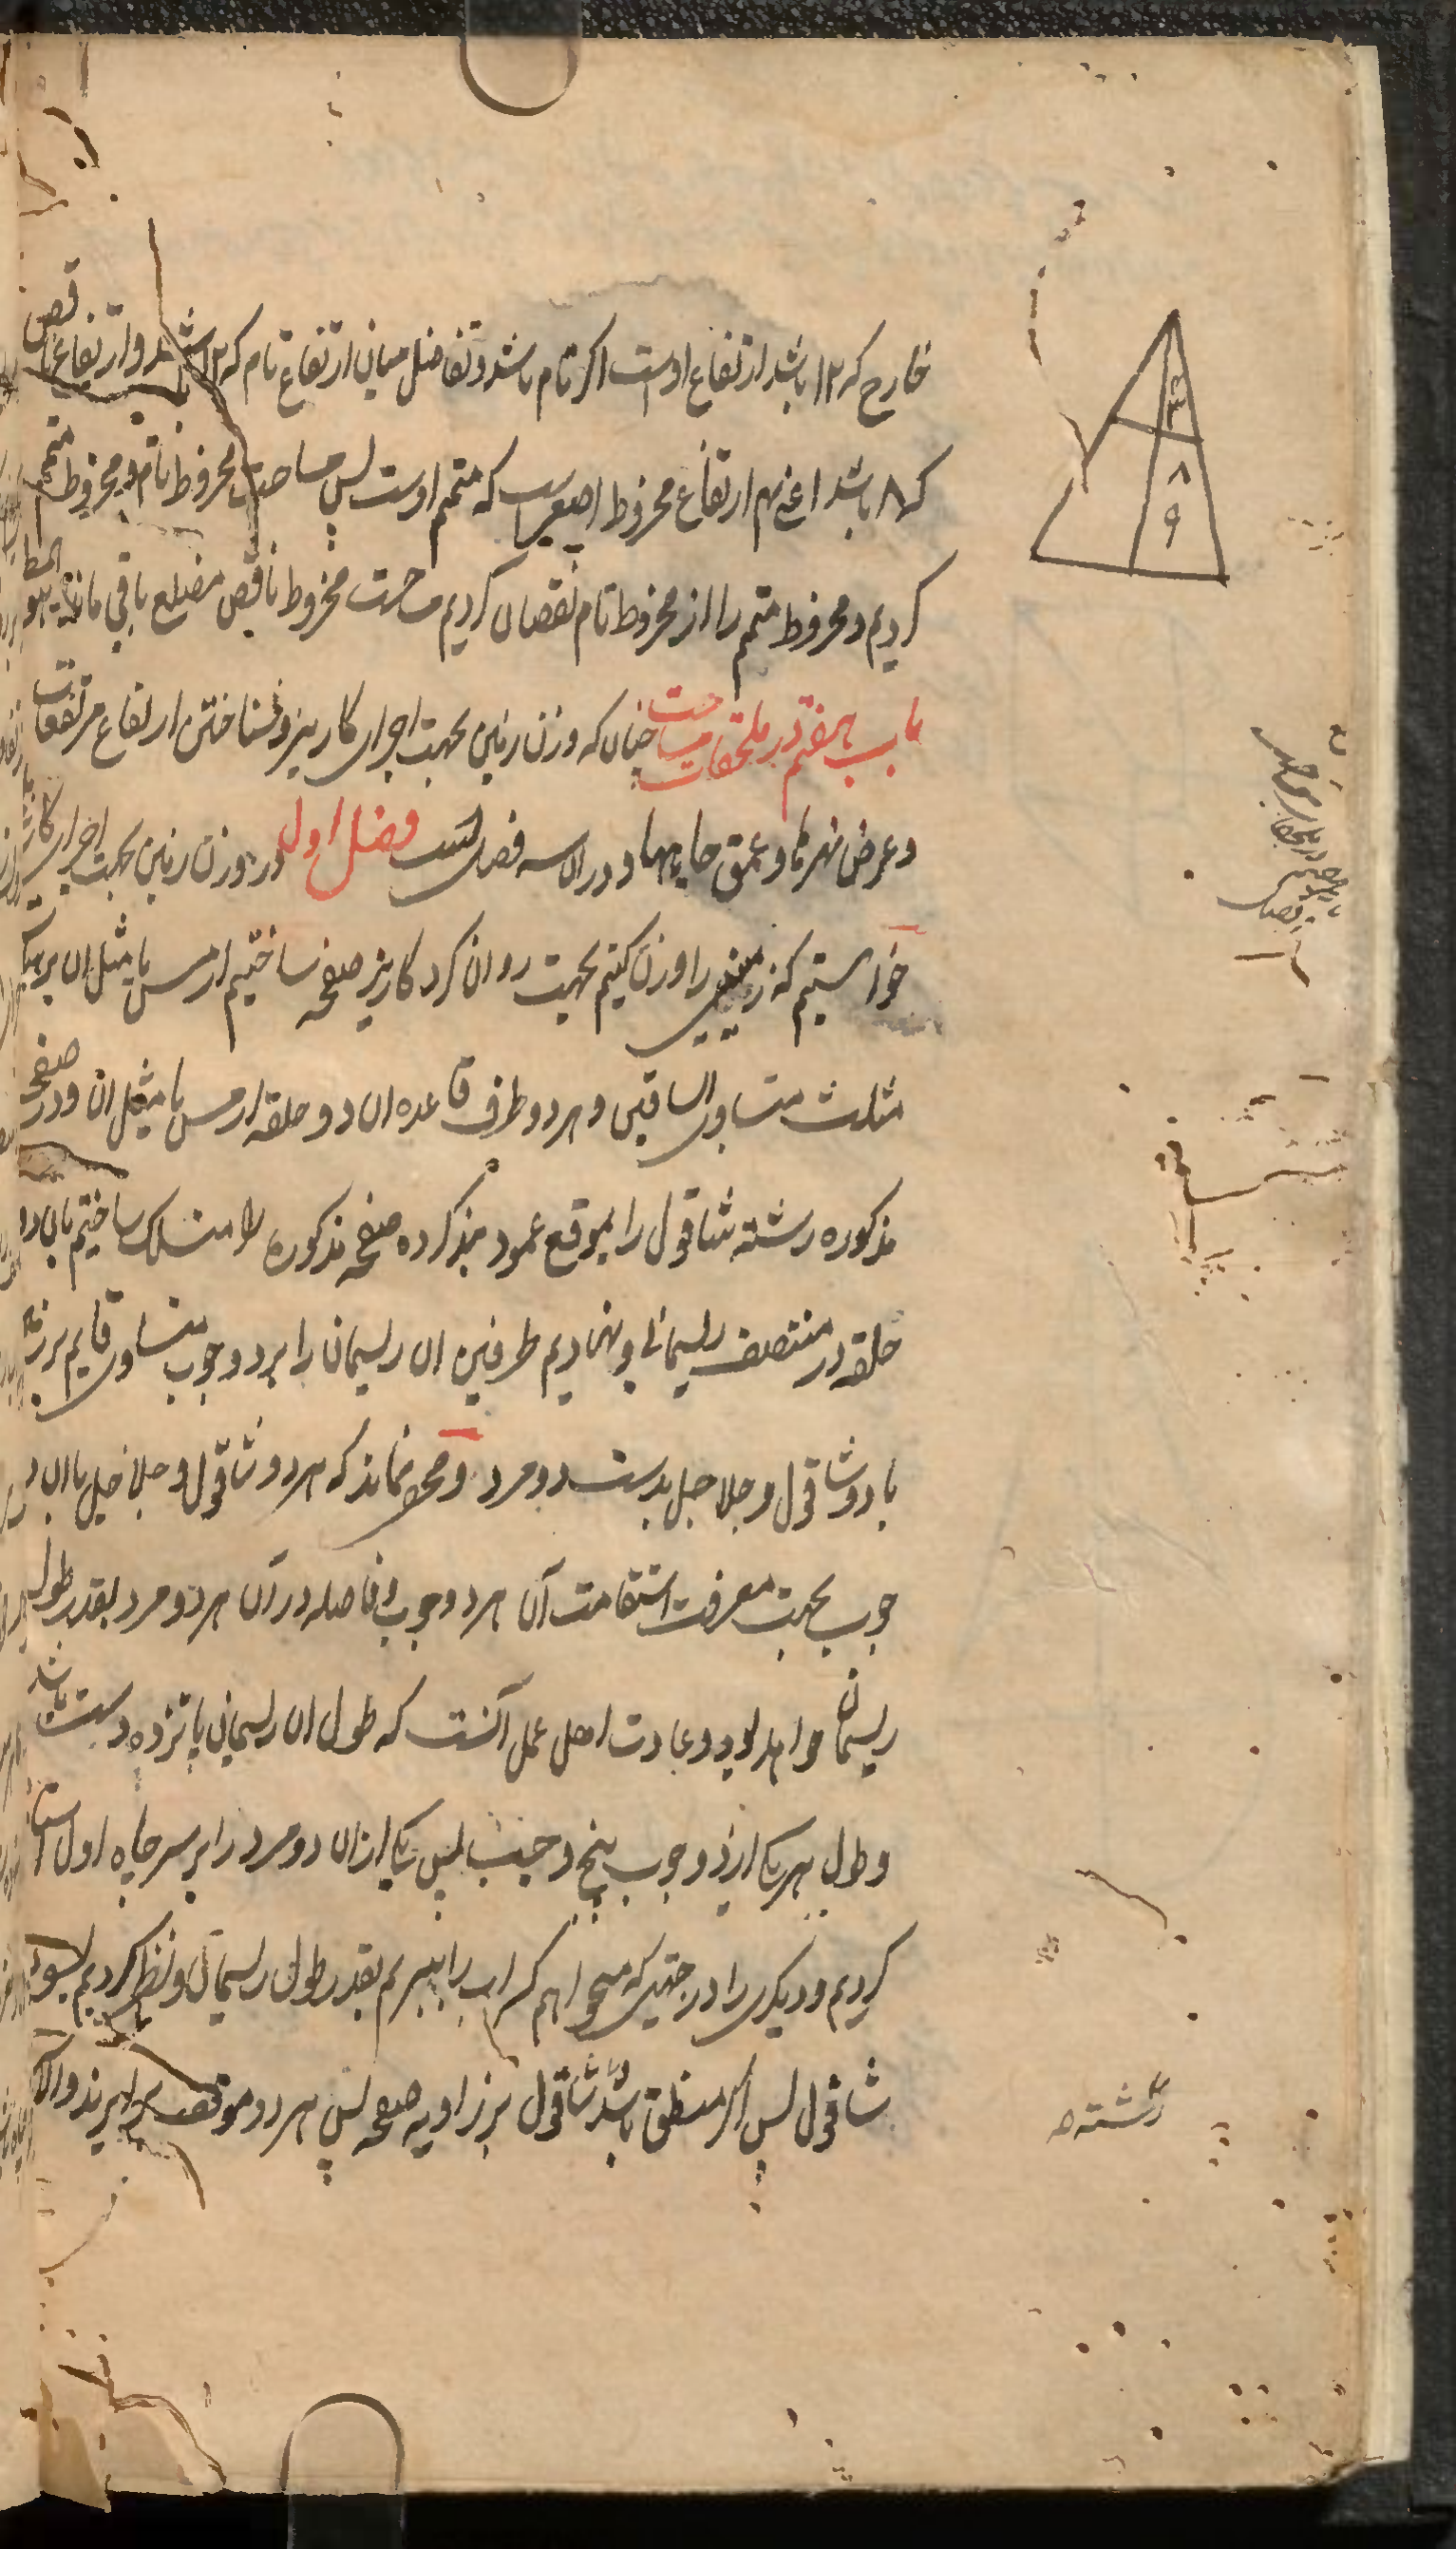 خارج که ۱۲ باشد ارتفاع اوست اکر تام باشد و تفاضل میان ارتفاع تام که ۱۲ باشد و ارتفاع ناقص
که ۸ باشد اعنی ۴ هم ارتفاع مخروط اصغریست که متمم اوست پس مساحت مخروط تام و مخروط متمم
کردیم و مخروط متمم را از مخروط تام نقصان کردیم مساحت مخروط ناقص مضلع باقی ماند و هو المط
باب هفتم در ملحقات مساحت چنان که وزن زمین بجهت اجرای کاریز و شناختن ارتفاع مرتفعات
و عرض نهرها و عمق چاهها و در او سه فصل است فصل اول در وزن زمین بجهت اجرای کاریز
خواستیم که زمینی را وزن کنیم بجهت روان کرد کاریز صفحه ساختیم از مس یا مثل ان بر هیئت
مثلث متساوی الساقین و هر دو طرف قاعده ان دو حلقه از مس یا مثل ان و در صفحه
مذکوره رشته شاقول را بموقع عمود بند کرده صفحه مذکوره را منسلک ساختیم بان دو
حلقه در منتصف ریسمانی و نهادیم طرفین ان ریسمان را بر دو چوب متساوی قایم بر زمین
با دو شاقول و جلاجل بدست دو مرد و مخفی نماند که هر دو شاقول و جلاجل با ان دو
چوب بجهت معرفت استقامت آن هر دو چوب و فاصله در آن هر دو مرد بقدر طول
ریسمان خواهد بود و عادت اهل عمل آنست که طول ان ریسمان پانزده دست باشد
و طول هر یک ازین دو چوب پنج و جب پس یک ازان دو مرد را بر سر چاه اول استاده
کردیم و دیکری را در جهتی که میخواهیم که اب را ببریم بقدر طول ریسمان و نظر کردیم بسوی
شاقول پس اکر منطبق باشد شاقول بر زاویه صفحه پس هر دو موقف برابرند و الا
رشته
۸